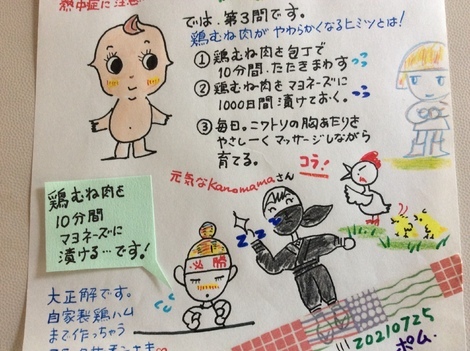 熱中症に注意
では、第3問です。
鶏むね肉がやわらかくなるヒミツとは!
① 鶏むね肉を包丁で
10分間、たたきまわす
② 鶏むね肉をマヨネーズに
1000日間漬けておく。
③ 毎日。ニワトリの胸あたりを
やさしーくマッサージしながら
育てる。
コラ!
元気なKanomamaさん
鶏むね肉を
10分間
マヨネーズに
漬ける…です!
必勝
ZZZ
大正解です。
自家製鶏ハム
まで作っちゃう
20210725
ポム.